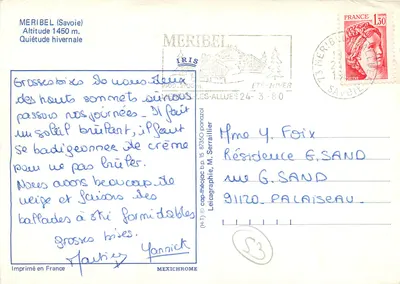 MERIBEL (Savoie)
Altitude 1450 m.
Quiétude hivernale
IRIS
MERIBEL
LES ALLUES 24-3-80
SAVOIE
FRANCE
1,30
Grosses bises de nous deux
des hauts sommets où nous
passons nos journées. Il fait
un soleil brûlant, il faut
se badigeonner de crème
pour ne pas brûler.
Nous avons beaucoup de
neige et faisons des
ballades à ski formidables
grosses bises.
Martine Yannick
Mme Y. Foix
Résidence G. SAND
rue G. SAND
91120 PALAISEAU
53
Leicagraphie, M. Serraillier
Imprimé en France
MEXICHROME